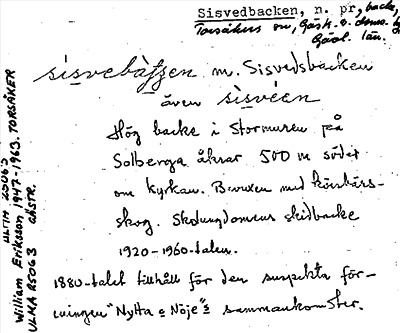 Sisvedbacken, n. pr., backe,
Torsåkers sn, Gästr. o. domsa.
Gävl. län.
sisvebàtsen m. Sisvedsbacken
även sisvéen
Hög backe i Stormuren på
Solberga åkrar 500 m söder
om kyrkan. Bevuxen med körsbärs-
skog. Skolungdomens skidbacke
1920-1960-talen.
1880-talet tillhåll för den suspekta för-
eningen "Nytta o Nöje":s sammankomster.
ULMA 2506:3
William Eriksson 1947-1963. TORSÅKER
ULMA 8506:3 ÅBSTR.